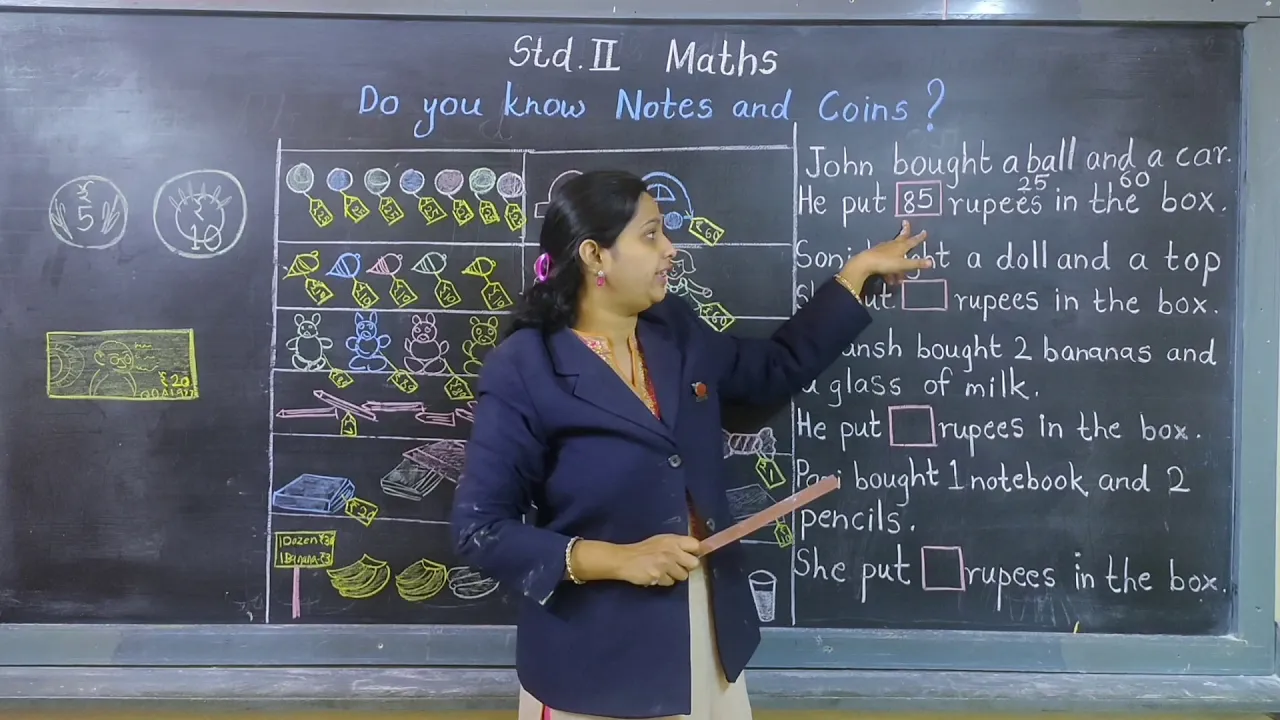 Std. II Maths
Do you know Notes and Coins?
₹ 5
₹ 10
₹20
₹60
₹60
₹20
1 Dozen ₹30
1 Banana-₹3
₹1
10
John bought a ball and a car.
25 60
He put 85 rupees in the box.
a doll and a top
put rupees in the box.
bought 2 bananas and
a glass of milk.
He put rupees in the box.
bought 1 notebook and 2
pencils.
She put rupees in the box.